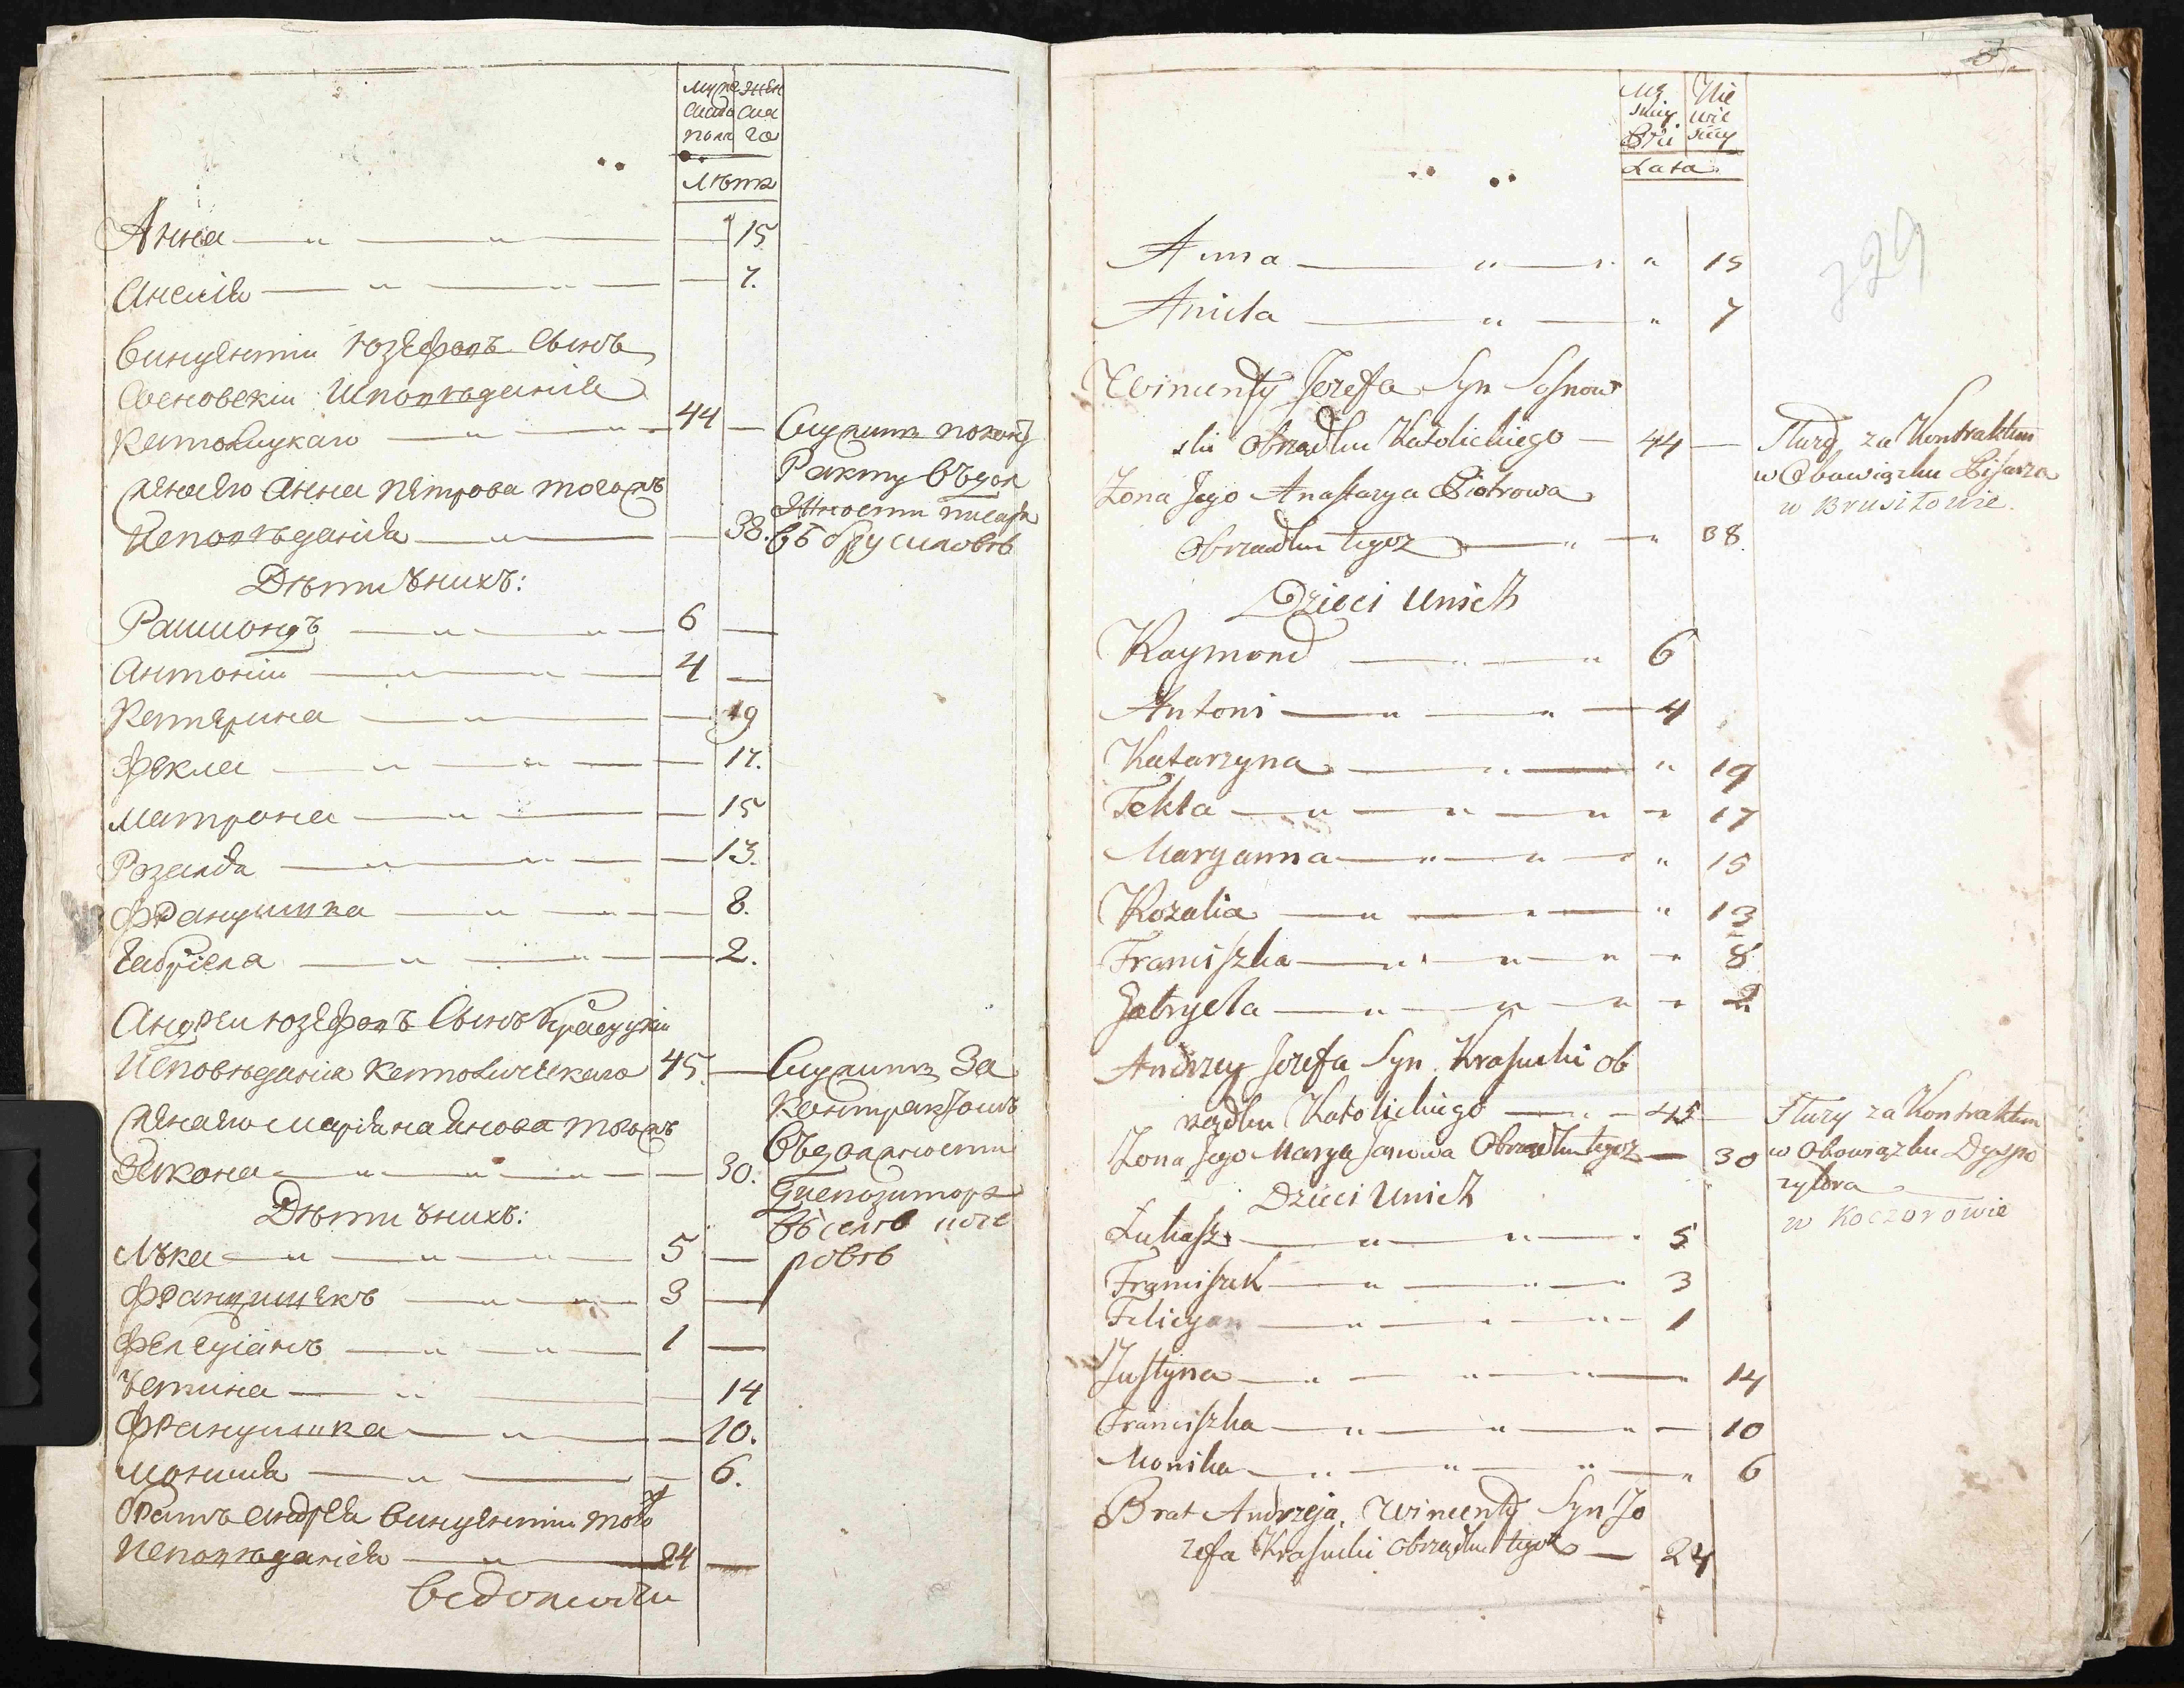 муже женска
ска го
пола
Лѣтъ
Анна 15
Анеля 7.
Винцентии Юзефовъ Сынъ
Сосновскіи Исповѣданія
Католицкаго 44
Служитъ по конт
ракту въ дол
жности писаря
въ Брусиловѣ
жена его Анна Петрова тогожъ
Исповѣданія 38.
Дѣти у нихъ:
Раимондъ 6
Антоніи 4
Катерина 19
Фекла 17.
Матрона 15
Розалія 13.
Францишка 8.
Габріела 2.
Андреи Юзефовъ Сынъ Красуцкіи
Исповѣданія Католическаго 45.
Служитъ за
Контрактомъ
въ должности
въ селѣ
ровѣ
жена его Маріяна Янова тогожъ
Закона 30.
Дѣти у нихъ:
Лука 5
Францишекъ 3
Фелеціанъ 1
Устина 14
Францишка 10.
Моника 6.
Братъ Андрея Винцентіи того
Исповѣданія 24
Mę Nie
skiey wie
Płci sciey
Lata
329
Anna 15
Aniela 7
Wincenty Jozefa Syn Sosnow
ski Obrzadku Katolickiego 44
Służy za Kontraktem
w Obowiązku Pisarza
w Brusiłowie.
Zona Jego Anastazya Piotrowa
Obrzadku tegoz 38.
Dzieci Unich
Raymond 6
Antoni 4
Katarzyna 19
Tekla 17
Maryanna 15
Rozalia 13
Franciszka 8
Gabryela 2
Andrzey Jozefa Syn Krasucki ob
rządku Katolickiego 45
Służy za Kontraktem
w Obowiązku Dyspo
zytora
w Koczorowie
Zona Jego Marya Janowa Obrzadku tegoz 30
Dzieci Unich
Łukasz 5
Franciszek 3
Felicyan 1
Justyna 14
Franciszka 10
Monika 6
Brat Andrzeja, Wincenty Syn Jo
zefa Krasucki obrządku tegoż 24